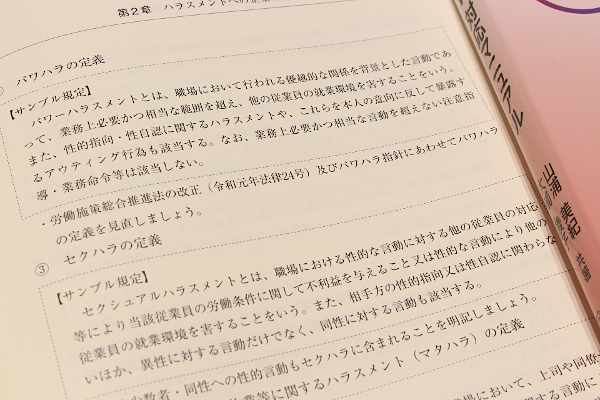 第2章 ハラスメントへの企業
パワハラの定義
【サンプル規定】
パワーハラスメントとは、職場において行われる優越的な関係を背景とした言動であ
って、業務上必要かつ相当な範囲を超え、他の従業員の就業環境を害することをいう。
また、性的指向・性自認に関するハラスメントや、これらを本人の意向に反して暴露す
るアウティング行為も該当する。なお、業務上必要かつ相当な言動を超えない注意指
導・業務命令等は該当しない。
・労働施策総合推進法の改正（令和元年法律24号）及びパワハラ指針にあわせてパワハラ
の定義を見直しましょう。
③ セクハラの定義
【サンプル規定】
セクシュアルハラスメントとは、職場における性的な言動に対する他の従業員の対応
等により当該従業員の労働条件に関して不利益を与えること又は性的な言動により他の
従業員の就業環境を害することをいう。また、相手方の性的指向又は性自認に関わらな
いほか、異性に対する言動だけでなく、同性に対する言動も該当する。
少数者・同性への性的言動もセクハラに含まれることを明記しましょう。
業等に関するハラスメント（マタハラ）の定義
職場において、上司や同僚
対応マニュアル
山浦 美紀